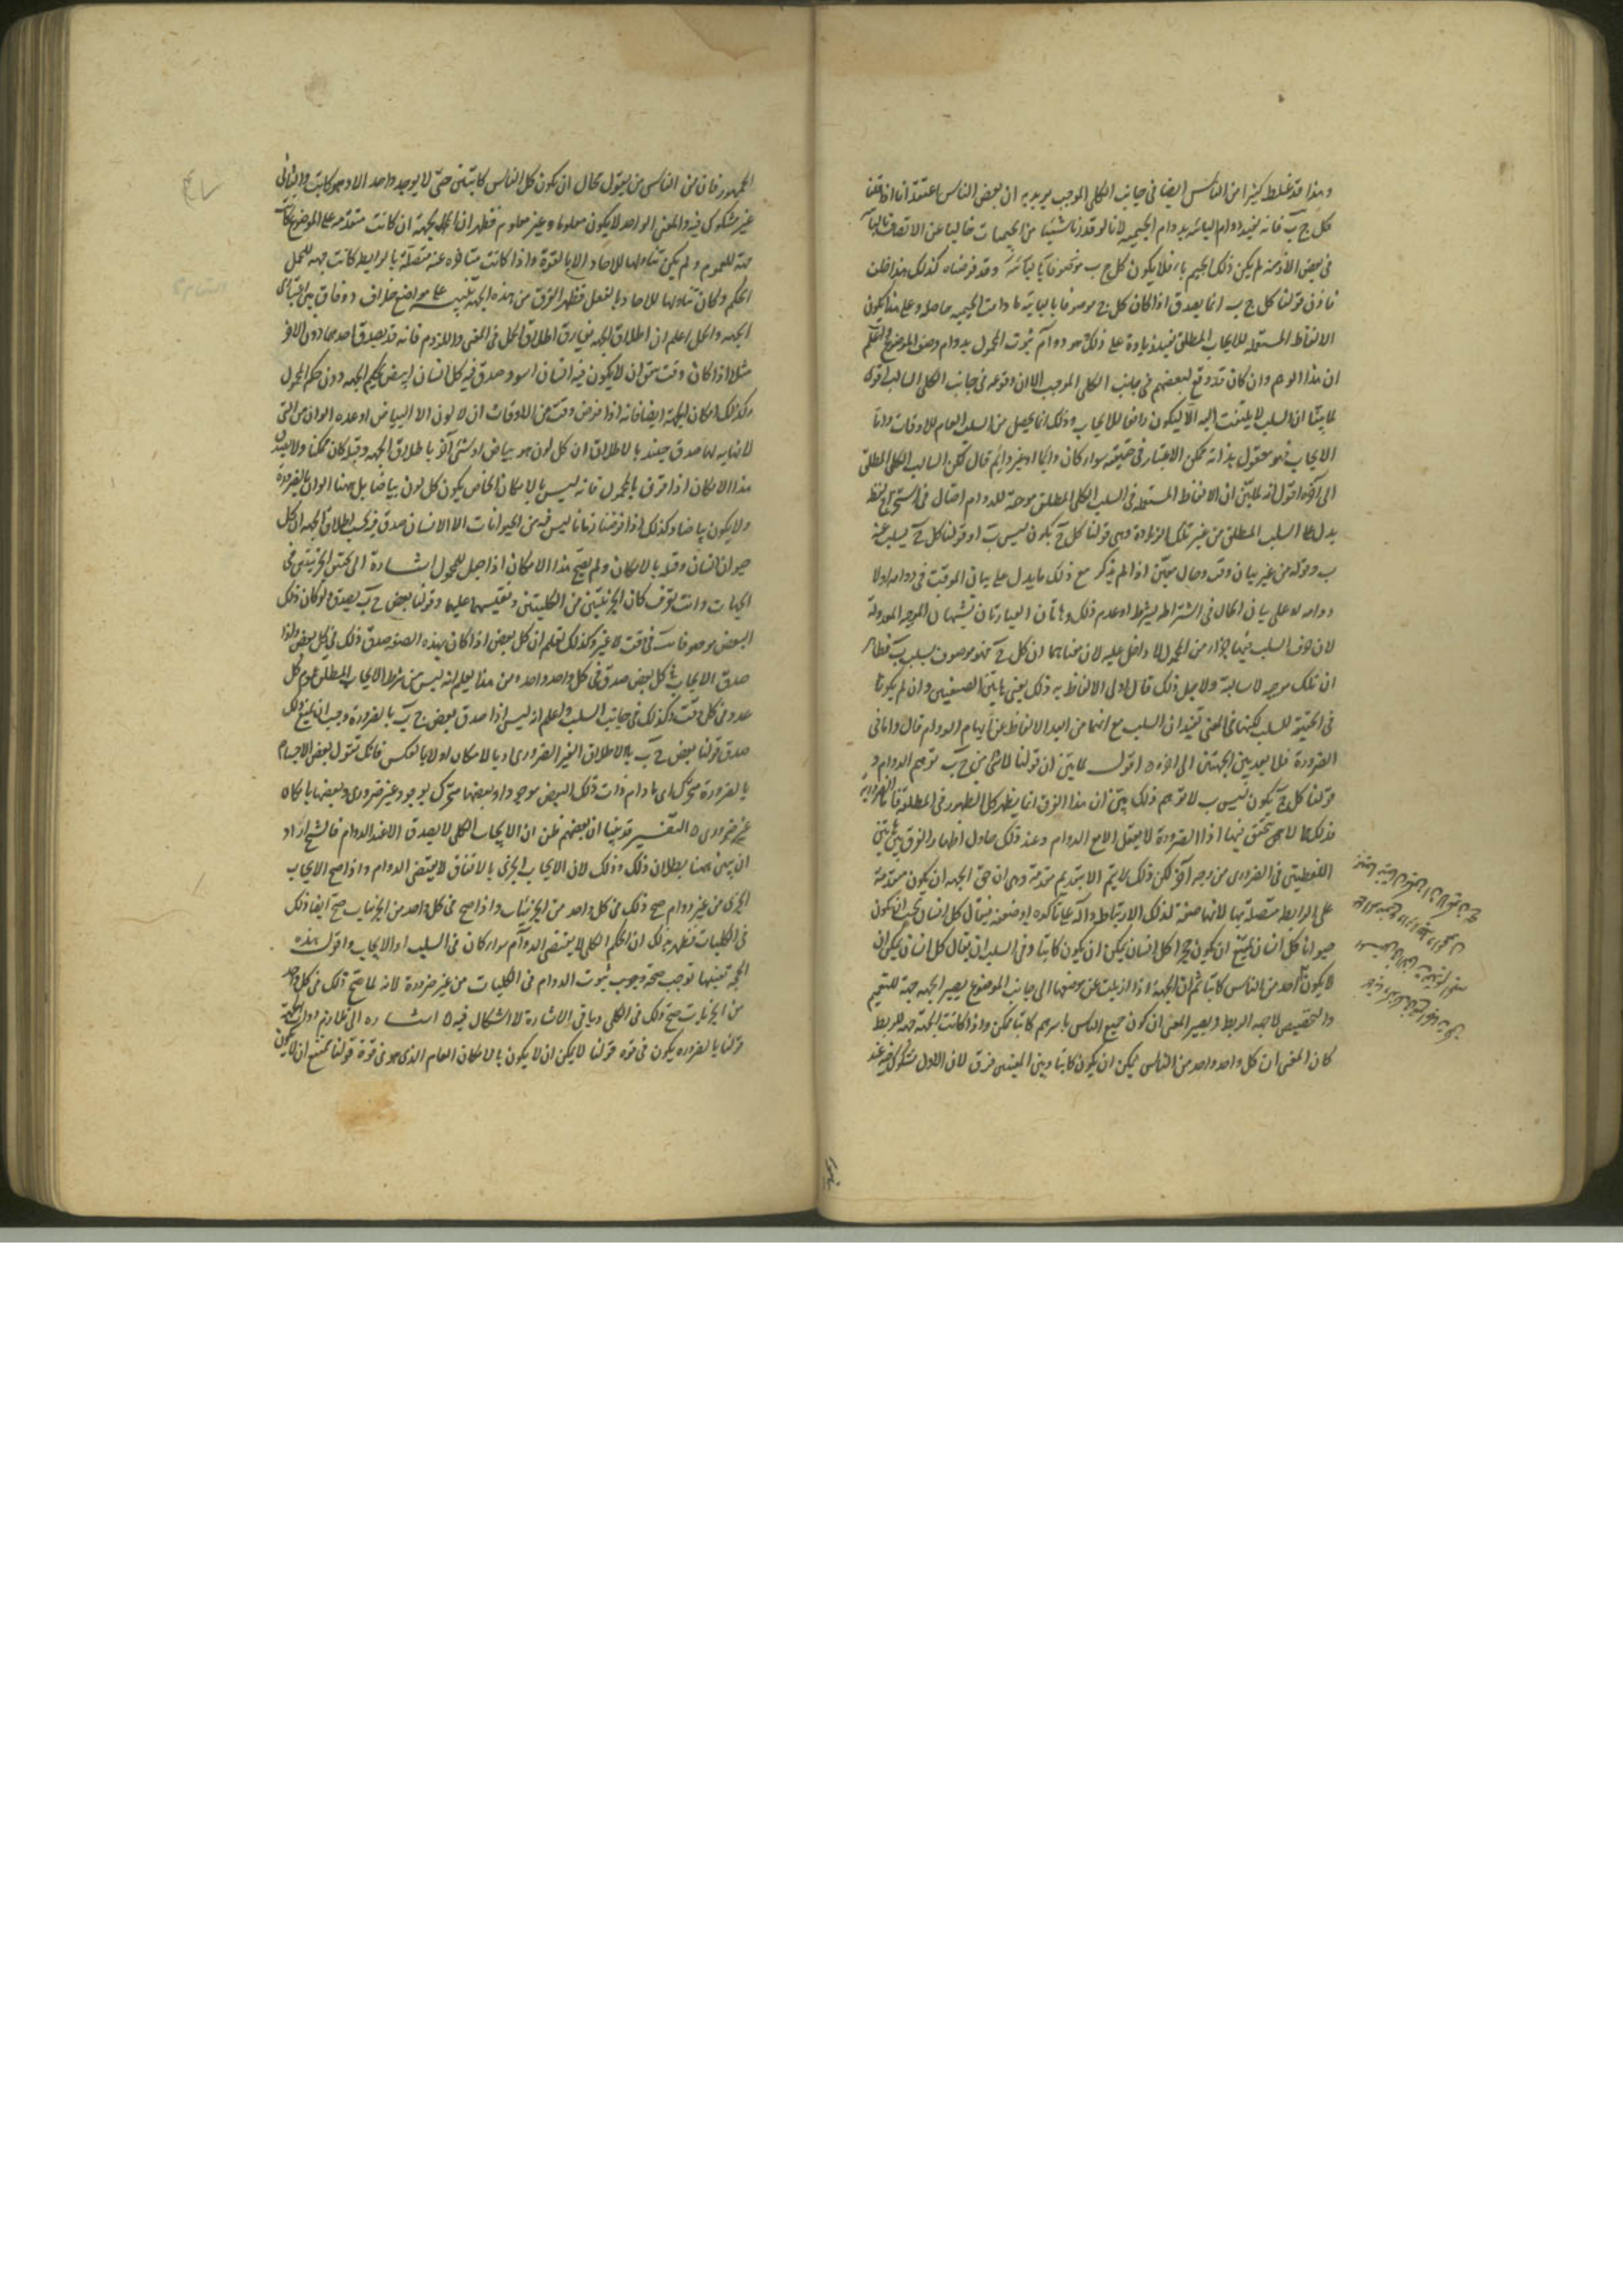 وهذا قد غلط كثيرا من الناس ايضا في جانب الكلي الموجب يريد به ان بعض الناس اعتقد انا اذا قلنا
كل ج ب فانه يفيد دوام البائية بدوام الجيمية لانا لو قدرنا شيئا من الجيمات خاليا عن الاتصاف بالبائية
في بعض الازمنة لم يكن ذلك الجيم باء فلا يكون كل ج ب موصوفا بالبائية وقد فرضناه كذلك هذا خلف
فاذن قولنا كل ج ب انما يصدق اذا كان كل ج موصوفا بالبائية ما دامت الجيمية حاصلة وعلى هذا يكون
الالفاظ المستعملة للايجاب المطلق تفيد زيادة على ذلك هو دوام ثبوت المحمول بدوام وصف الموضوع واعلم
ان هذا الوهم وان كان قد وقع لبعضهم في جانب الكلي الموجب الا ان وقوعه في جانب الكلي السالب اقوى
لما بينا ان السلب لا يلتفت اليه الا ليكون رافعا للايجاب وذلك انما يحصل من السلب العام للاوقات واما
الايجاب فهو معقول بذاته ممكن الاعتبار في حقيقته سواء كان دايما او غير دايم قال لكن السالب الكلي المطلق
الى آخره اقول انه لما بين ان الالفاظ المستعملة في السلب الكلي المطلق موهمة للدوام احتال في استخراج لفظ
يدل على السلب المطلق من غير تلك الزيادة وهي قولنا كل ج يكون ليس ب او قولنا كل ج يسلب عنه
ب وقوله من غير بيان وقت وحال يبين اذا لم يذكر مع ذلك ما يدل على بيان الموقت في دوامه او لا
دوامه او على بيان الحال في اشتراطه بشرط او عدم ذلك وهاتان العبارتان يشبهان الموجبة المعدولة
لان حرف السلب فيهما جزء من المحمول لا داخل عليه لان معناهما ان كل ج فهو موصوف بسلب ب فظاهر
ان تلك موجبة لا سالبة ولاجل ذلك قال اولى الالفاظ به ذلك يعني هاتين الصيغتين وان لم يكونا
في الحقيقة للسلب لكنهما في المعنى تفيدان السلب مع انهما من ابعد الالفاظ عن ايهام الدوام قال واما في
الضرورة فلا بعد بين الجهتين الى آخره اقول لما بين ان قولنا لا شئ من ج ب توهم الدوام و
قولنا كل ج يكون ليس ب لا توهم ذلك بين ان هذا الفرق انما يظهر كل الظهور في المطلق فاما الضرورية
فذلك مما لا يتحقق فيها اذا الضرورة لا يعقل الا مع الدوام وعند ذلك حاول اظهار الفرق بين هاتين
اللفظتين في الضروري من وجه آخر لكن ذلك لا يتم الا بتقديم مقدمة وهي ان حق الجهة ان يكون مقدمة
على الرابطة متصلة بها لانها صفة لذلك الارتباط دالة على تاكده او ضعفه فيقال كل انسان يجب ان يكون
حيوانا كل انسان يمتنع ان يكون حجرا كل انسان يمكن ان يكون كاتبا وفي السلب ان يقال كل انسان يمكن ان
لا يكون احد من الناس كاتبا ثم ان الجهة اذا ازيلت عن موضعها الى جانب الموضوع يصير الجهة جهة للتعميم
والتخصيص لا جهة الربط ويصير المعنى ان كون جميع الناس باسرهم كاتبا ممكن واذا كانت الجهة جهة للربط
كان المعنى ان كل واحد واحد من الناس يمكن ان يكون كاتبا وبين المعنيين فرق لان الاول مشكوك فيه عند
الجمهور فان من الناس من يقول محال ان يكون كل الناس كاتبين حتى لا يوجد واحد الا وهو كاتب والثاني
غير مشكوك فيه والمعنى الواحد لا يكون معلوما وغير معلوم فظهر ان الجهة ان كانت متقدمة على الموضوع كانت
جهة للعموم ولم يكن تناولها للاحاد الا بالقوة واذا كانت متاخرة عنه متصلة بالرابط كانت جهة للحمل
الحكم وكان تناولها للاحاد بالفعل فظهر الفرق من هذه الجهة تنبيه على مواضع خلاف ووفاق بين اعتباري
الجهة والحمل اعلم ان اطلاق الجهة يفارق اطلاق الحمل في المعنى واللزوم فانه قد يصدق احدهما دون الآخر
مثلا اذا كان وقت يتفق ان لا يكون فيه انسان اسود صدق فيه كل انسان ابيض بحكم الجهة دون حكم الحمل
وكذلك امكان الجهة ايضا فانه اذا فرض وقت من الاوقات ان لا لون الا البياض او عدة الوان من التي
لا نهاية لها صدق حينئذ بالاطلاق ان كل لون هو بياض او شئ آخر باطلاق الجهة وقبله كان ممكنا ولا يصدق
هذا الامكان اذا قرن بالمحمول فانه ليس بالامكان الخاص يكون كل لون بياضا بل ههنا الوان بالضرورة
ولا يكون بياضا وكذلك اذا فرضنا زمانا ليس فيه من الحيوانات الا الانسان صدق فيه بحسب اطلاق الجهة ان كل
حيوان انسان وقبله بالامكان ولم يصح هذا الامكان اذا جعل للمحمول اشارة الى تحقيق الجزئيتين في
الجهات وانت تعرف كان الجزئيتين من الكليتين وتقيسهما عليهما وقولنا بعض ج ب يصدق ولو كان ذلك
البعض موصوفا بب في وقت لا غير وكذلك تعلم ان كل بعض اذا كان بهذه الصفة صدق ذلك في كل بعض واذا
صدق الايجاب في كل بعض صدق في كل واحد واحد ومن هذا يعلم انه ليس من شرط الايجاب المطلق عموم كل
عدد في كل وقت وكذلك في جانب السلب واعلم انه ليس اذا صدق بعض ج ب بالضرورة وجب ان يمنع ذلك
صدق قولنا بعض ج ب بالاطلاق الغير الضروري او بالامكان ولا بالعكس فانك تقول بعض الاجسام
بالضرورة متحرك اي ما دام ذات ذلك البعض موجودا وبعضها متحرك بوجود غير ضروري وبعضها بامكان
غير ضروري التفسير قد بينا ان بعضهم ظن ان الايجاب الكلي لا يصدق الا عند الدوام فالشيخ اراد
ان يبين ههنا بطلان ذلك وذلك لان الايجاب الجزئي بالاتفاق لا يقتضى الدوام واذا صح الايجاب
الجزئي من غير دوام صح ذلك في كل واحد من الجزئيات واذا صح في كل واحد من الجزئيات صح ايضا ذلك
في الكليات فظهر بذلك ان الحكم الكلي لا يقتضى الدوام سواء كان في السلب او الايجاب واقول هذه
الحجة بعينها توجب صحة وجوب ثبوت الدوام في الكليات من غير ضرورة لانه لما صح ذلك في كل واحد
من الجزئيات صح ذلك في الكلي وباقي الاشارة لا اشكال فيه اشارة الى تلازم ذوات الجهة
قولنا بالضرورة يكون في قوة قولنا لا يمكن ان لا يكون بالامكان العام الذي هو في قوة قولنا يمتنع ان لا يكون